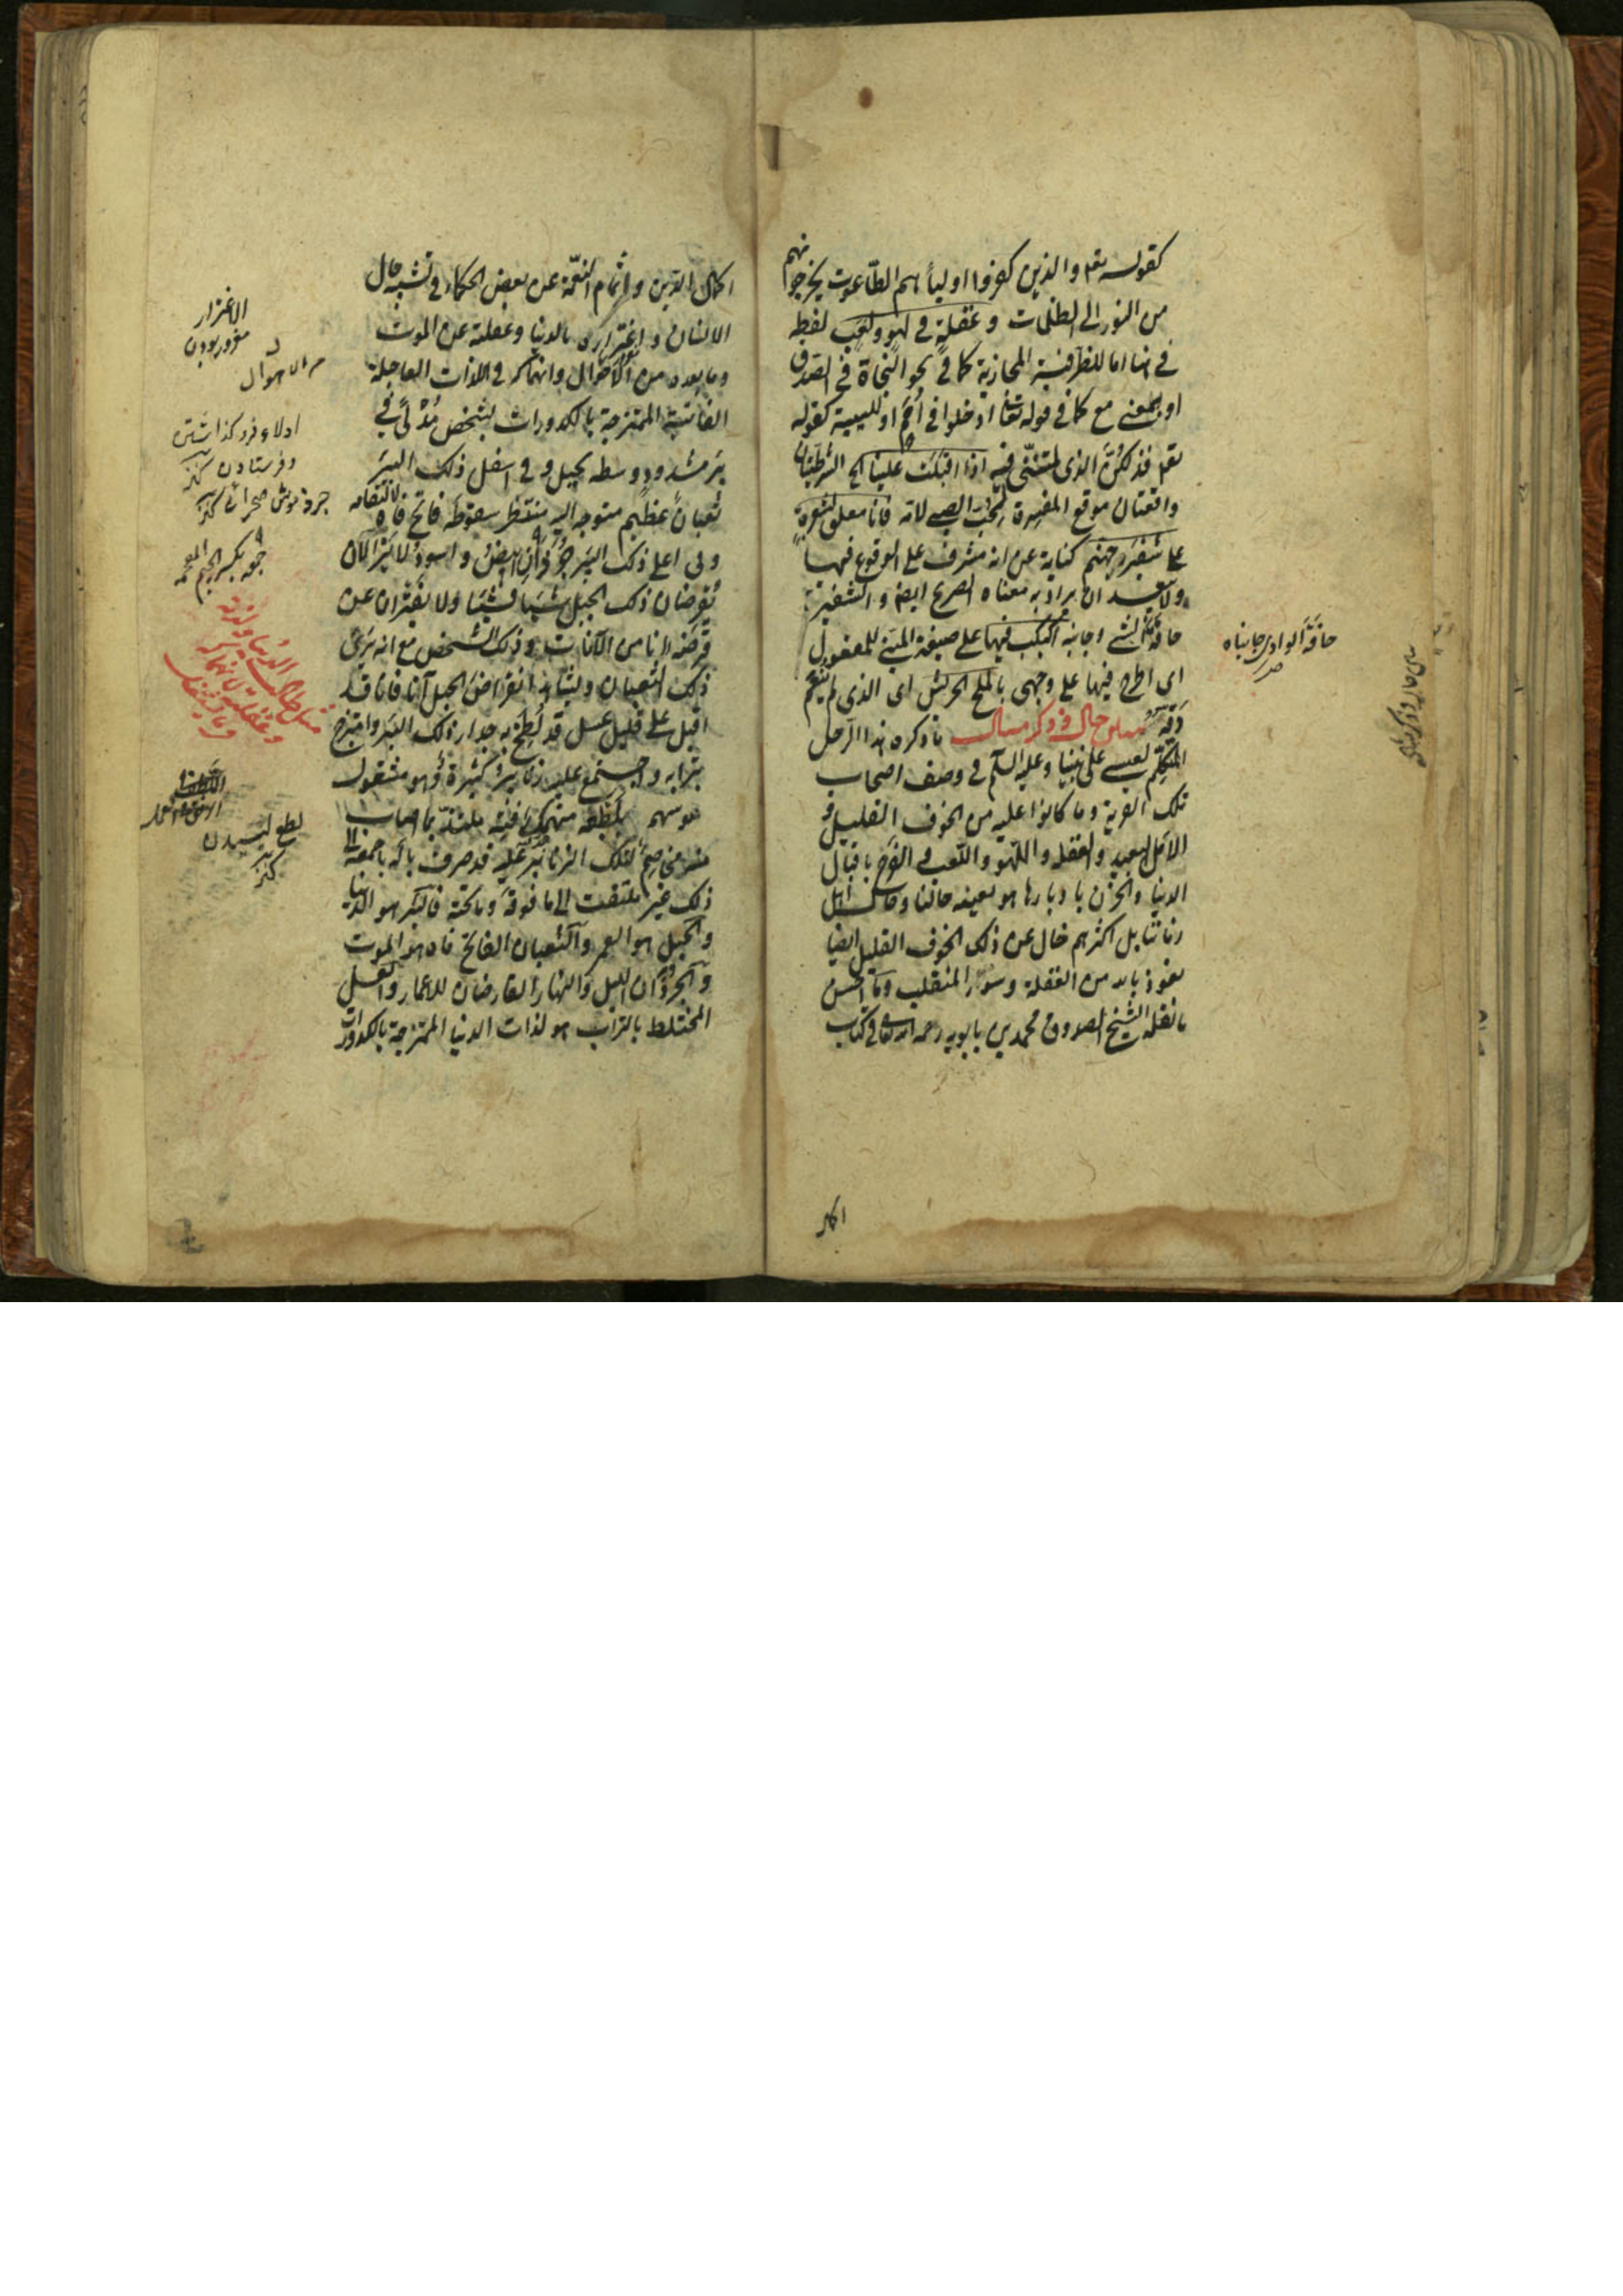 كقوله تعم والذين كفروا اوليأهم الطّاغوت يخرجونهم
من النور الى الظلمات وغفلةٍ فى لهوٍ ولعبٍ لفظة
فى هنا اما للظرفية المجازية كما فى نحو النجاة فى الصدق
او بمعنى مع كما فى قوله تعالى ادخلوا فى اُممٍ او للسببية كقوله
تعم فذلكنّ الذى لمتنّنى فيه اذا اقبلت علينا الخ الشرطيتان
واقعتان موقع المفسرة لحبّ الصبى لامّه فانا معلق بشعرةٍ
على شفير جهنّم كناية عن انه مشرف على الوقوع فيها
ولا يبعد ان يراد به معناه الصريح ايضا والشفير
حافة الشئ وجانبه اُكبكب فيها على صيغة المبنى للمفعول
اى اطرح فيها على وجهى بالملح الجريش اى الذى لم ينعّم
دقّه تمثيل حال فى ذكر مثال ما ذكره هذا الرّجل
المتكلّم لعيسى على نبيّنا وعليه السلم فى وصف اصحاب
تلك القرية وما كانوا عليه من الخوف القليل و
الامل البعيد والغفلة واللّهو واللّعب فى الفرح باقبال
الدنيا والحزن بادبارها هو بعينه حالنا وحال اهل
زماننا بل اكثرهم خال عن ذلك الخوف القليل ايضا
نعوذ بالله من الغفلة وسوء المنقلب وما احسن
ما نقله الشيخ الصدوق محمد بن بابويه رحمه الله تعالى فى كتاب
اكمال
حافّة الوادى جانباه
صر
اكمال الدين واتمام النعمة عن بعض الحكماء فى تشبيه حال
الانسان واغتراره بالدنيا وغفلته عن الموت
وما بعده من الاهوال وانهماكه فى اللذات العاجلة
الفانية الممتزجة بالكدورات بشخص مُدْلًى فى
بئر مشدود وسطه بحبل وفى اسفل ذلك البئر
ثعبان عظيم متوجه اليه منتظر سقوطه فاتح فاه لالتقامه
وفى اعلى ذلك البئر جُرَذان ابيض واسود لا يزالان
يقرضان ذلك الحبل شيئا فشيئا ولا يفتران عن
قرضه انا من الآنات وذلك الشخص مع انه يرى
ذلك الثعبان ويشاهد انقراض الحبل آنا فانا قد
اقبل على قليل عسل قد لُطِخ به جدار ذلك البئر وامتزج
بترابه واجتمع عليه زنابير كثيرة وهو مشغول
بلطعه منهمك فيه ملتذّ بما اصاب
منه مخاصم لتلك الزنابير عليه قد صرف باله باجمعه الى
ذلك غير ملتفت الى ما فوقه وما تحته فالبئر هو الدنيا
والحبل هو العمر والثعبان الفاتح فاه هو الموت
والجرذان الليل والنهار القارضان للاعمار والعسل
المختلط بالتراب هو لذات الدنيا الممتزجة بالكدورات
الاغترار
مغرور بودن
الاهوال
ادلاء فرو كذاشتن
وفرستادن كنز
جرذ موش صحرائى كنز
بكسر الجيم المعجمه
لطع ليسيدن
كنز